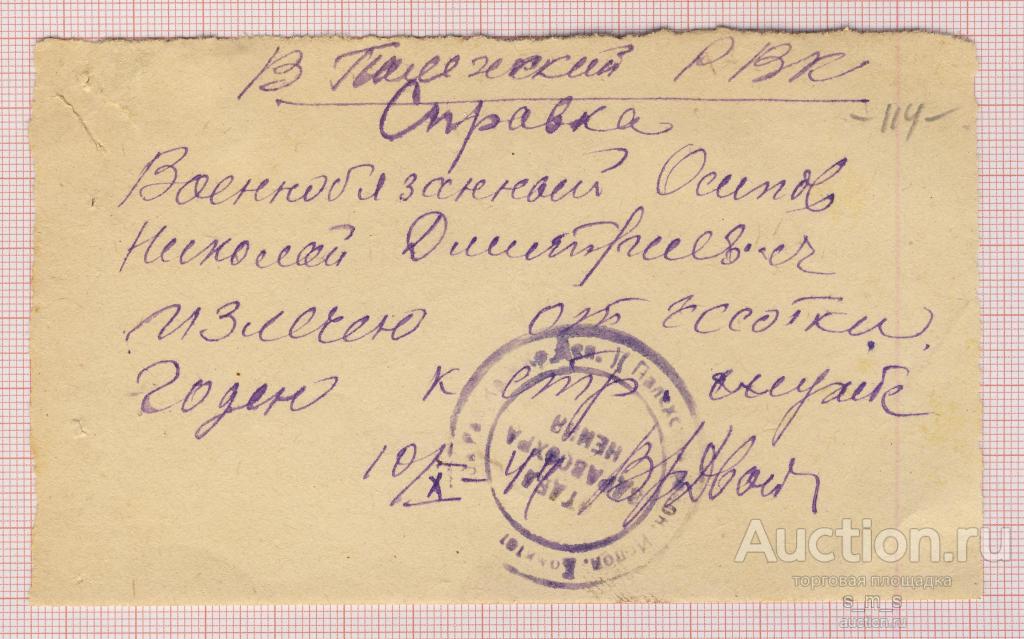 В Палехский РВК
Справка
-114-
Военнобязанный Осипов
Николай Дмитриевич
излечен от чесотки.
Годен к стр. службе
10/X-44 Вр.
Испол.
ЗДРАВООХРА
НЕНИЯ
Auction.ru
торговая площадка
s_m_s
auction.ru